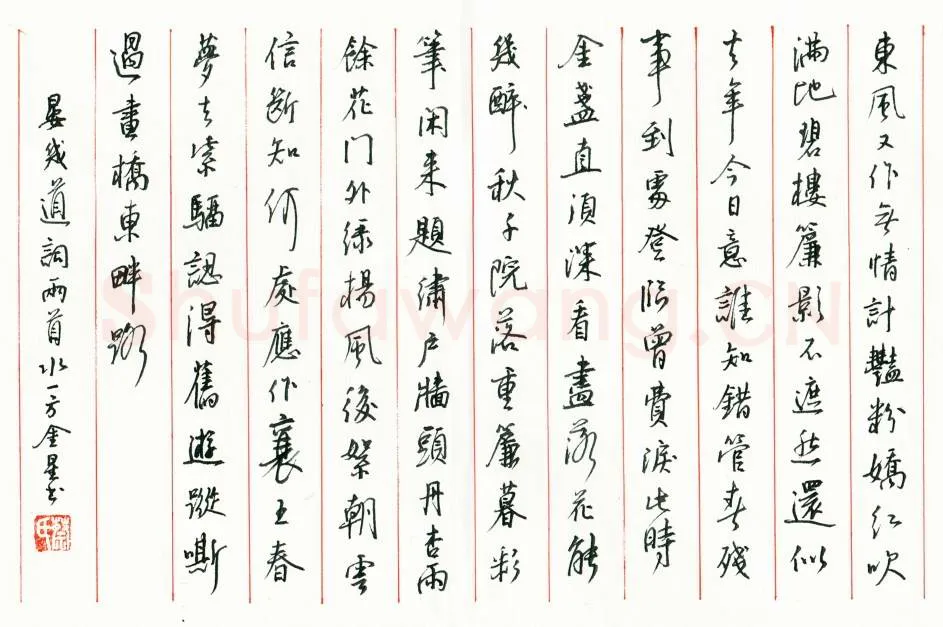 東風又作無情計豔粉嬌紅吹
滿地碧樓簾影不遮愁還似
去年今日意誰知錯管春殘
事到處登臨曾費淚此時
金盞直須深看盡落花能
幾醉秋千院落重簾暮彩
筆閑來題繡戶牆頭丹杏雨
餘花門外綠楊風後絮朝雲
信斷知何處應作襄王春
夢去紫騮認得舊遊蹤嘶
過畫橋東畔路
晏幾道詞兩首水一方金星書
Shufawang.CN